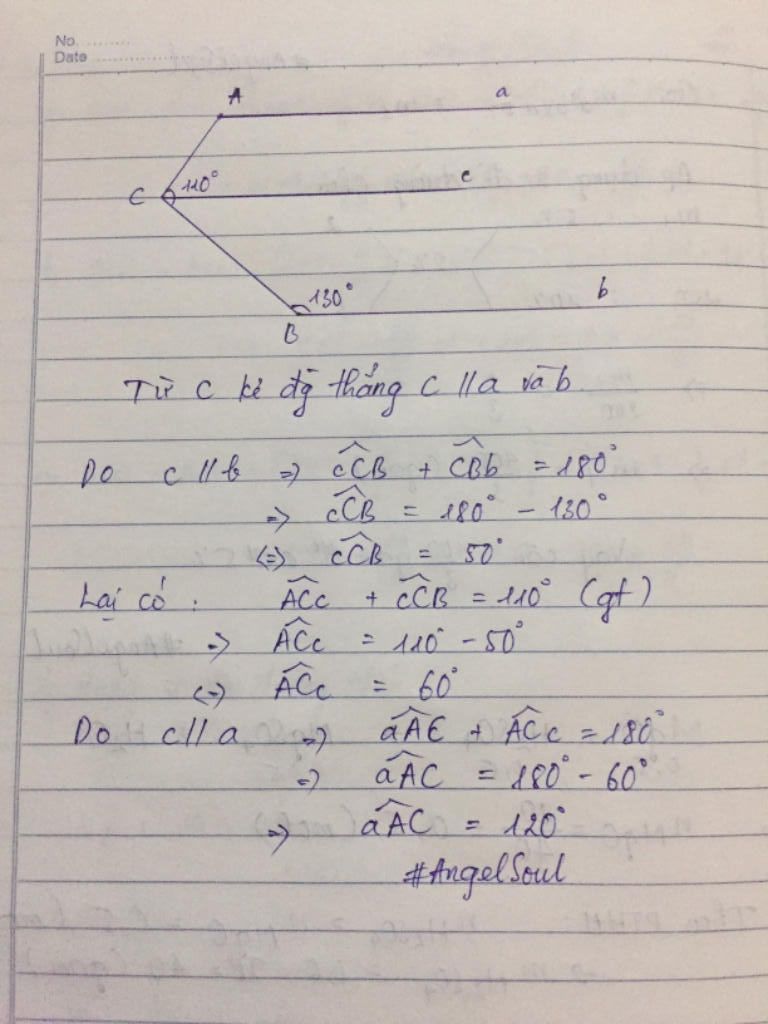 No.
Date
A a
C 110° c
130° b
B
Từ C kẻ đg thẳng c // a và b
Do c // b => cCB + CBb = 180°
=> cCB = 180° - 130°
<=> cCB = 50°
Lại có : ACc + cCB = 110° (gt)
=> ACc = 110° - 50°
<=> ACc = 60°
Do c // a => aAC + ACc = 180°
=> aAC = 180° - 60°
=> aAC = 120°
#AngelSoul